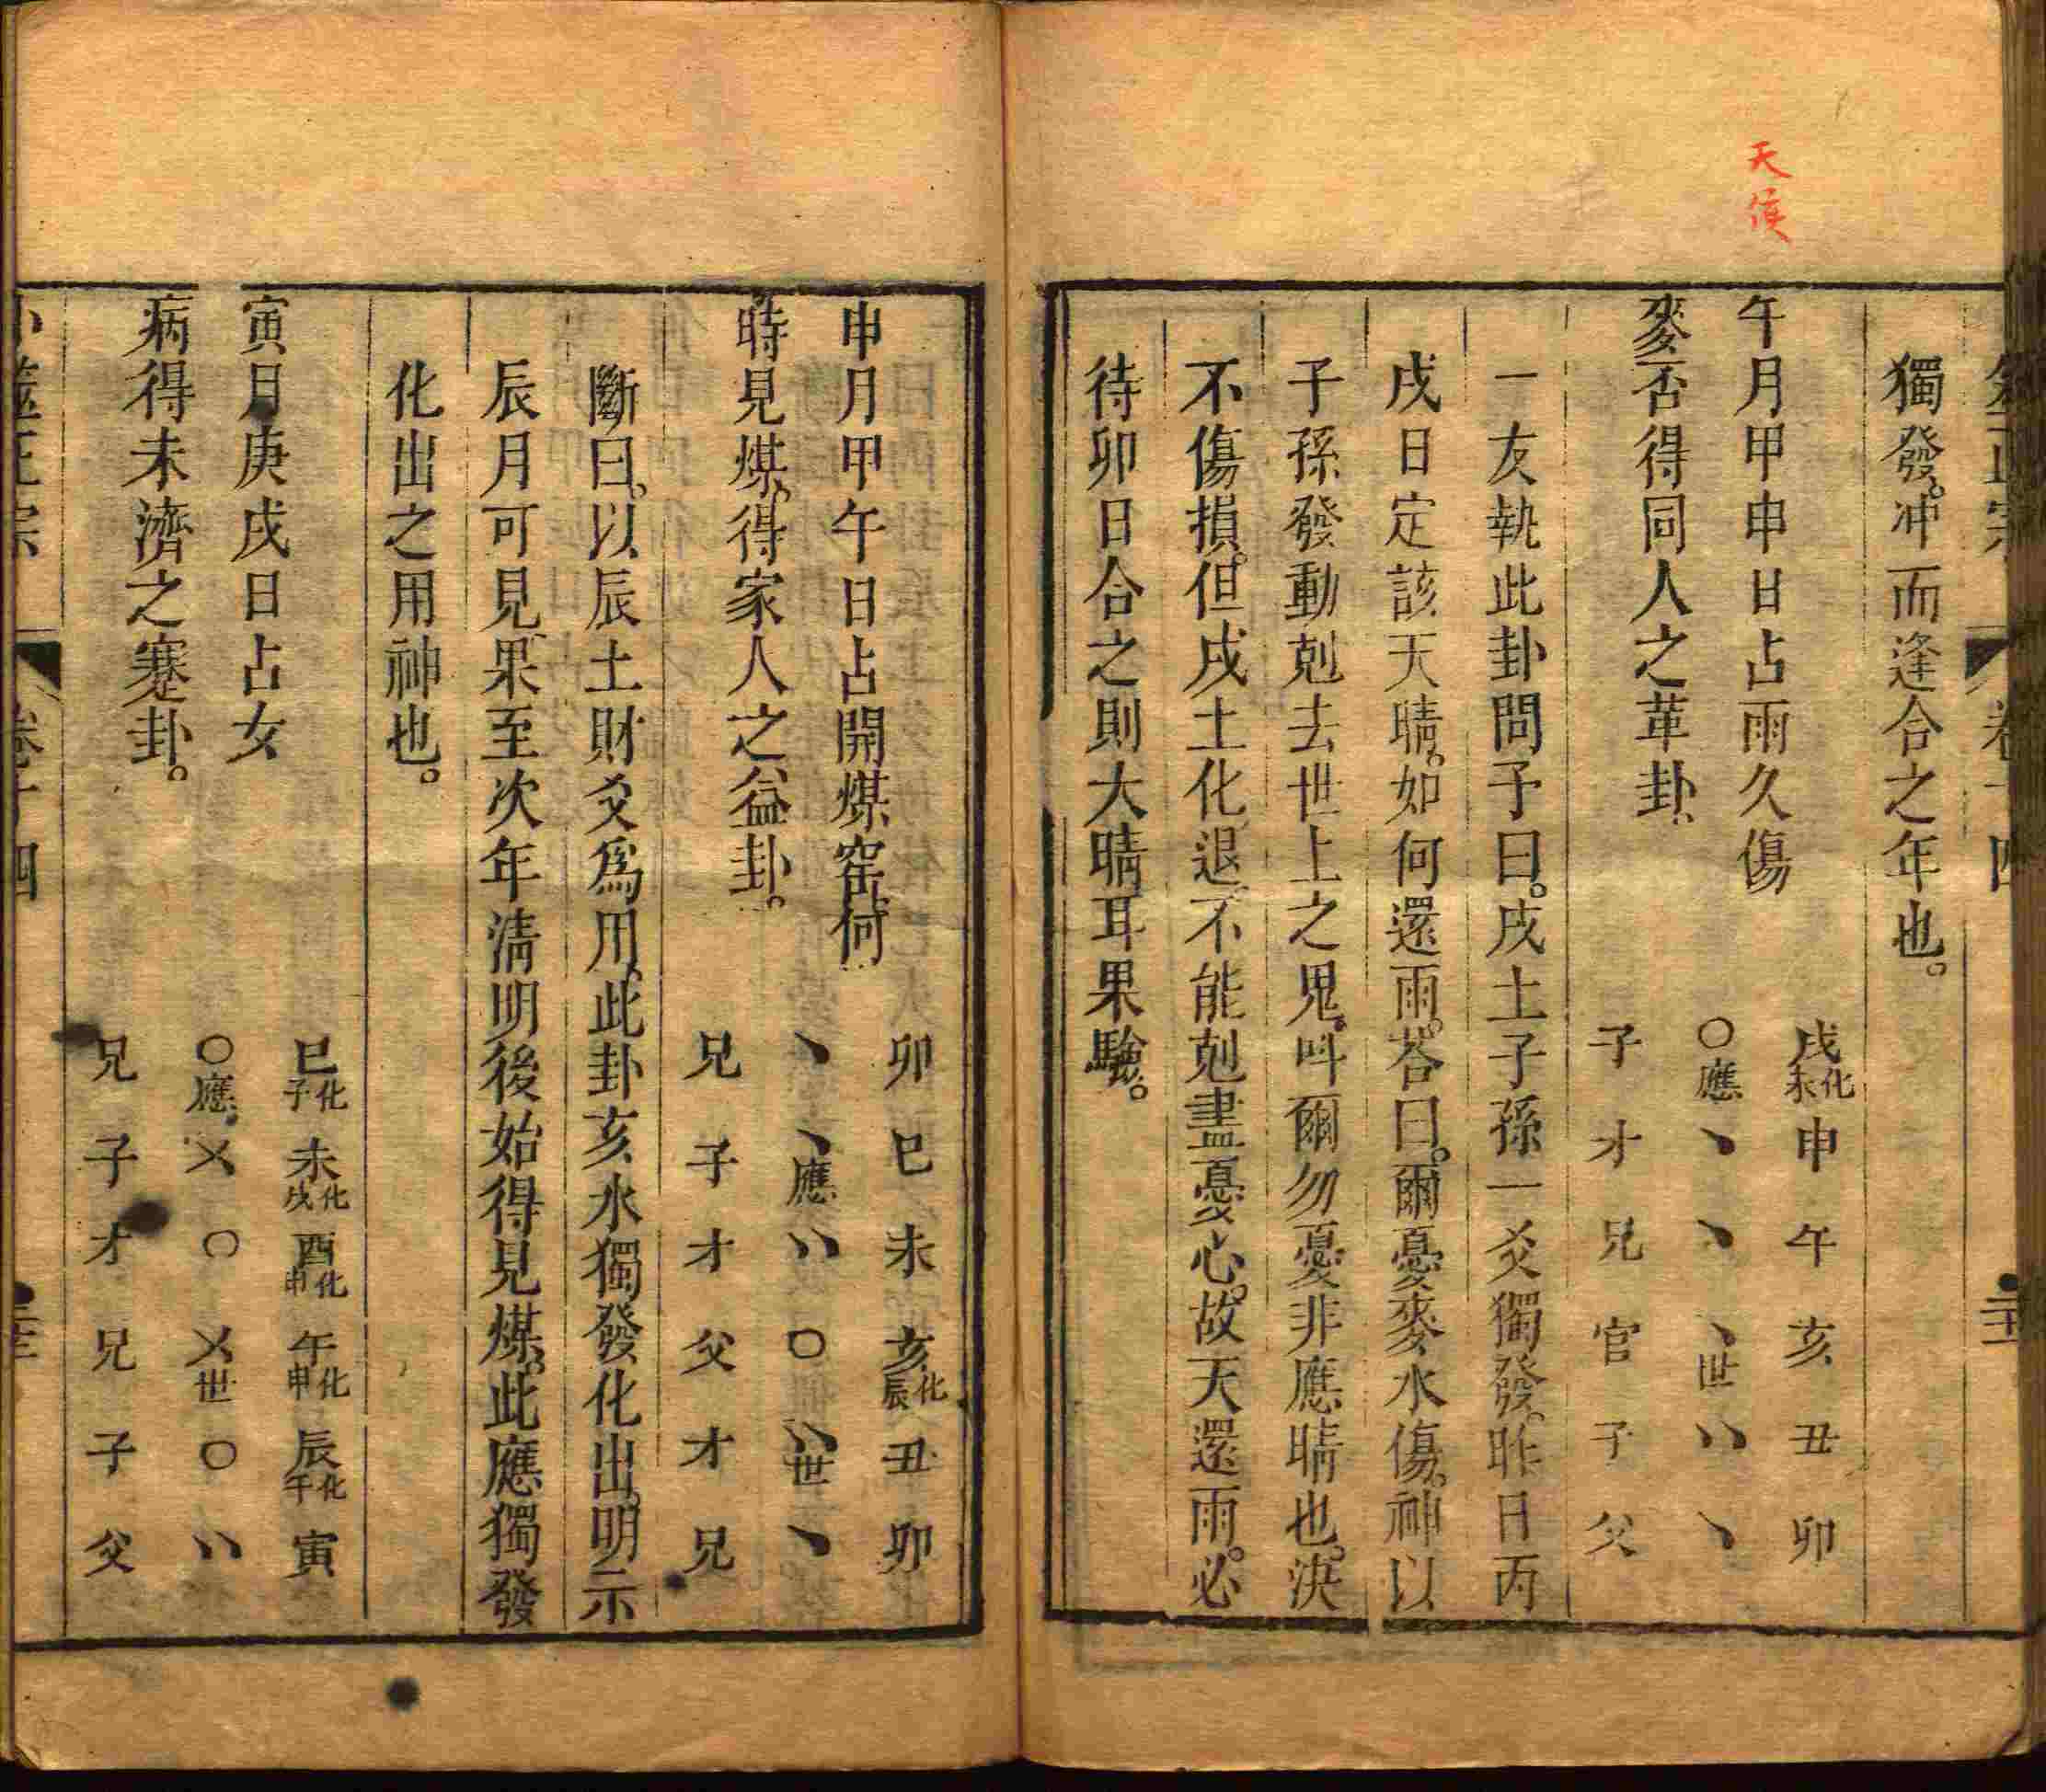 天候
獨發。冲而逢合之年也。
午月甲申日占雨久傷
麥否得同人之革卦。
戌化未 申 午 亥 丑 卯
〇應 丶 丶 丶世 丷 丶
子 才 兄 官 子 父
一友執此卦問予曰。戌土子孫一爻獨發。昨日丙
戌日定該天晴。如何還雨。荅曰。爾憂麥水傷。神以
子孫發動剋去世上之鬼。呌爾勿憂非應晴也。決
不傷損。但戌土化退、不能剋盡憂心。故天還雨。必
待卯日合之則大晴耳果驗。
申月甲午日占開煤窑何
時見煤。得家人之益卦。
卯 巳 未 亥化辰 丑 卯
丶 丶應 丷 〇 丷世 丶
兄 子 才 父 才 兄
斷曰。以辰土財爻爲用。此卦亥水獨發化出。明示
辰月可見、果至次年淸明後始得見煤。此應獨發
化出之用神也。
寅月庚戌日占女
病得未濟之蹇卦。
巳化子 未化戌 酉化申 午化申 辰化午 寅
〇應 乂 〇 乂世 〇 丷
兄 子 才 兄 子 父
卜筮正宗 卷十四